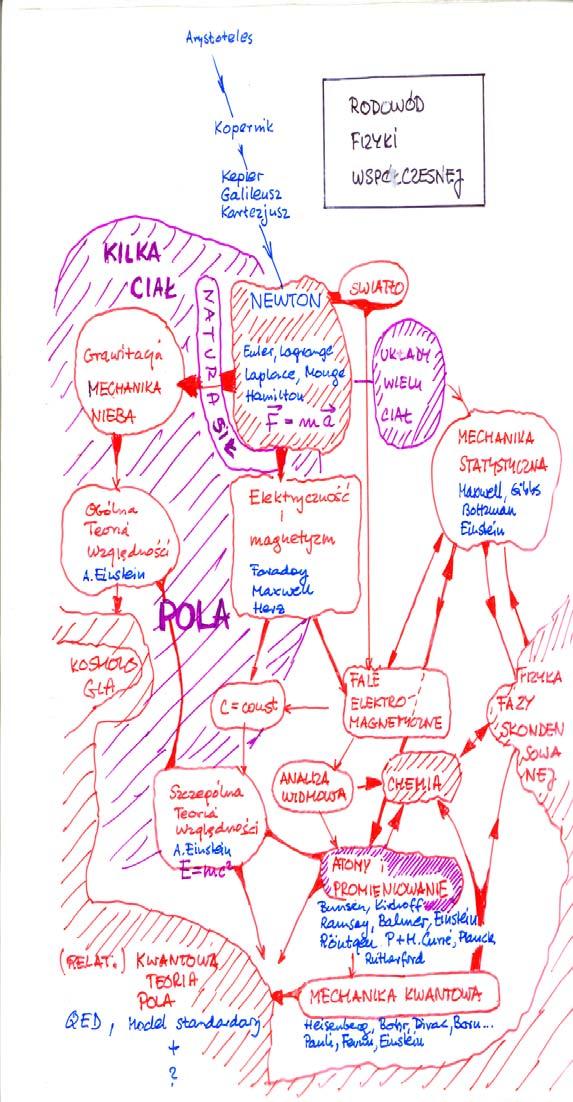 Arystoteles
RODOWÓD
FIZYKI
WSPÓŁCZESNEJ
Kopernik
Kepler
Galileusz
Kartezjusz
KILKA
CIAŁ
NATURA SIŁ
NEWTON
Euler, Lagrange
Laplace, Monge
Hamilton
F = ma
ŚWIATŁO
UKŁADY
WIELU
CIAŁ
Grawitacja
MECHANIKA
NIEBA
MECHANIKA
STATYSTYCZNA
Maxwell, Gibbs
Boltzman
Einstein
Elektryczność
i
magnetyzm
Faraday
Maxwell
Herz
Ogólna
Teoria
Względności
A. Einstein
POLA
KOSMOLO
GIA
C = const
FALE
ELEKTRO-
MAGNETYCZNE
FIZYKA
FAZY
SKONDEN
SOWA
NEJ
ANALIZA
WIDMOWA
CHEMIA
Szczególna
Teoria
Względności
A. Einstein
E=mc²
ATOMY i
PROMIENIOWANIE
Bunsen, Kirchoff
Ramsay, Balmer, Einstein
Röntgen P+M. Curie, Planck
Rutherford
(RELAT.) KWANTOWA
TEORIA
POLA
QED, Model standardowy
+
?
MECHANIKA KWANTOWA
Heisenberg, Bohr, Dirac, Born...
Pauli, Fermi, Einstein